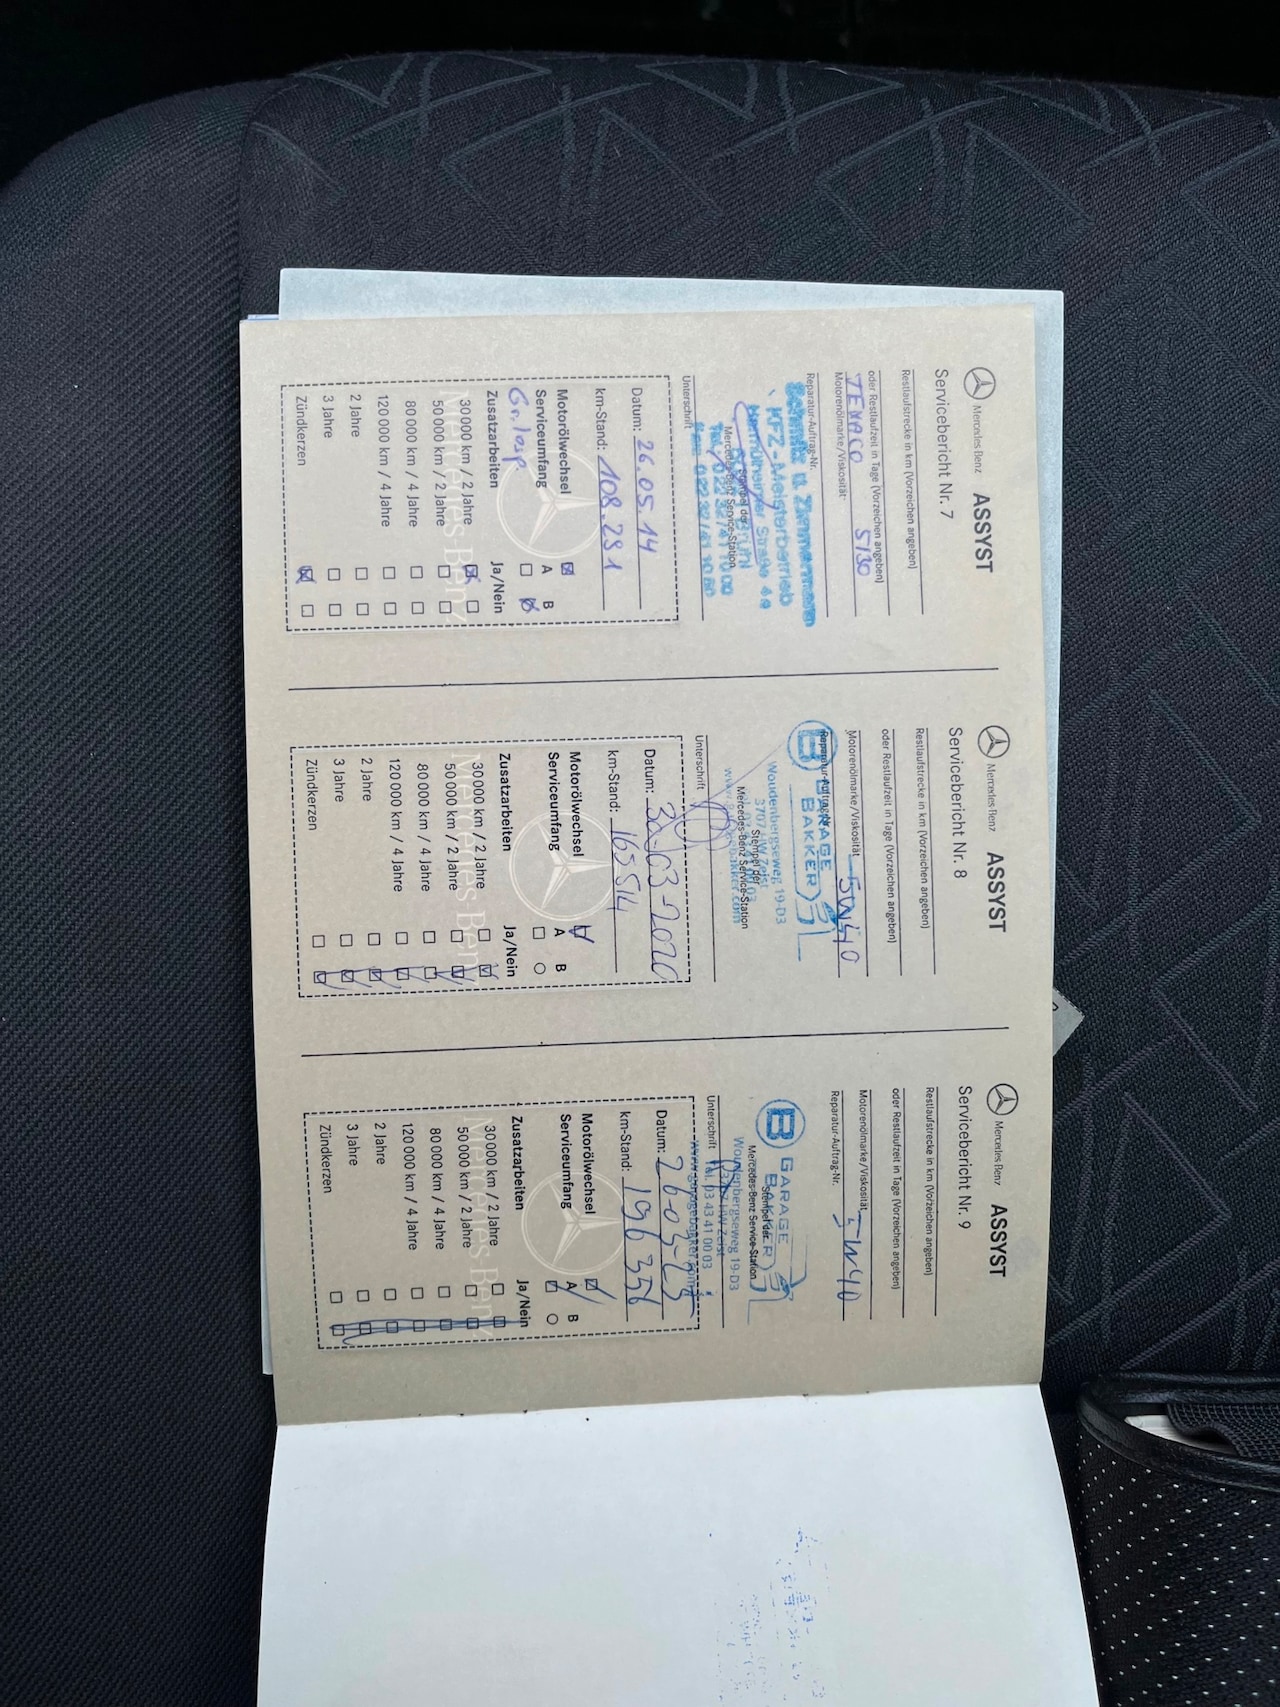 Mercedes-Benz ASSYST
Servicebericht Nr. 7
Restlaufstrecke in km (Vorzeichen angeben)
oder Restlaufzeit in Tage (Vorzeichen angeben)
TEXACO 5/30
Motorenölmarke/Viskosität:
Reparatur-Auftrag-Nr.
KFZ-Meisterbetrieb
Straße 4a
Stempel der
Mercedes-Benz Service-Station
Unterschrift
Datum: 26.05.14
km-Stand: 108.291
Motorölwechsel
A B
Serviceumfang
Zusatzarbeiten Ja/Nein
30 000 km / 2 Jahre
50 000 km / 2 Jahre
80 000 km / 4 Jahre
120 000 km / 4 Jahre
2 Jahre
3 Jahre
Zündkerzen
Mercedes-Benz
Mercedes-Benz ASSYST
Servicebericht Nr. 8
Restlaufstrecke in km (Vorzeichen angeben)
oder Restlaufzeit in Tage (Vorzeichen angeben)
Motorenölmarke/Viskosität 5W40
Reparatur-Auftrag-Nr.
B GARAGE
BAKKER
Woudenbergseweg 19-D3
3707 HW Zeist
Stempel der
Mercedes-Benz Service-Station
Unterschrift
Datum: 30-03-2020
km-Stand: 165514
Motorölwechsel
A B
Serviceumfang
Zusatzarbeiten Ja/Nein
30 000 km / 2 Jahre
50 000 km / 2 Jahre
80 000 km / 4 Jahre
120 000 km / 4 Jahre
2 Jahre
3 Jahre
Zündkerzen
Mercedes-Benz
Mercedes-Benz ASSYST
Servicebericht Nr. 9
Restlaufstrecke in km (Vorzeichen angeben)
oder Restlaufzeit in Tage (Vorzeichen angeben)
Motorenölmarke/Viskosität 5W40
Reparatur-Auftrag-Nr.
B GARAGE
BAKKER
Stempel der
Mercedes-Benz Service-Station
Woudenbergseweg 19-D3
3707 HW Zeist
Tel. 03 43 41 00 03
Unterschrift
www.garagebakker.com
Datum: 26-03-23
km-Stand: 196 356
Motorölwechsel
A B
Serviceumfang
Zusatzarbeiten Ja/Nein
30 000 km / 2 Jahre
50 000 km / 2 Jahre
80 000 km / 4 Jahre
120 000 km / 4 Jahre
2 Jahre
3 Jahre
Zündkerzen
Mercedes-Benz